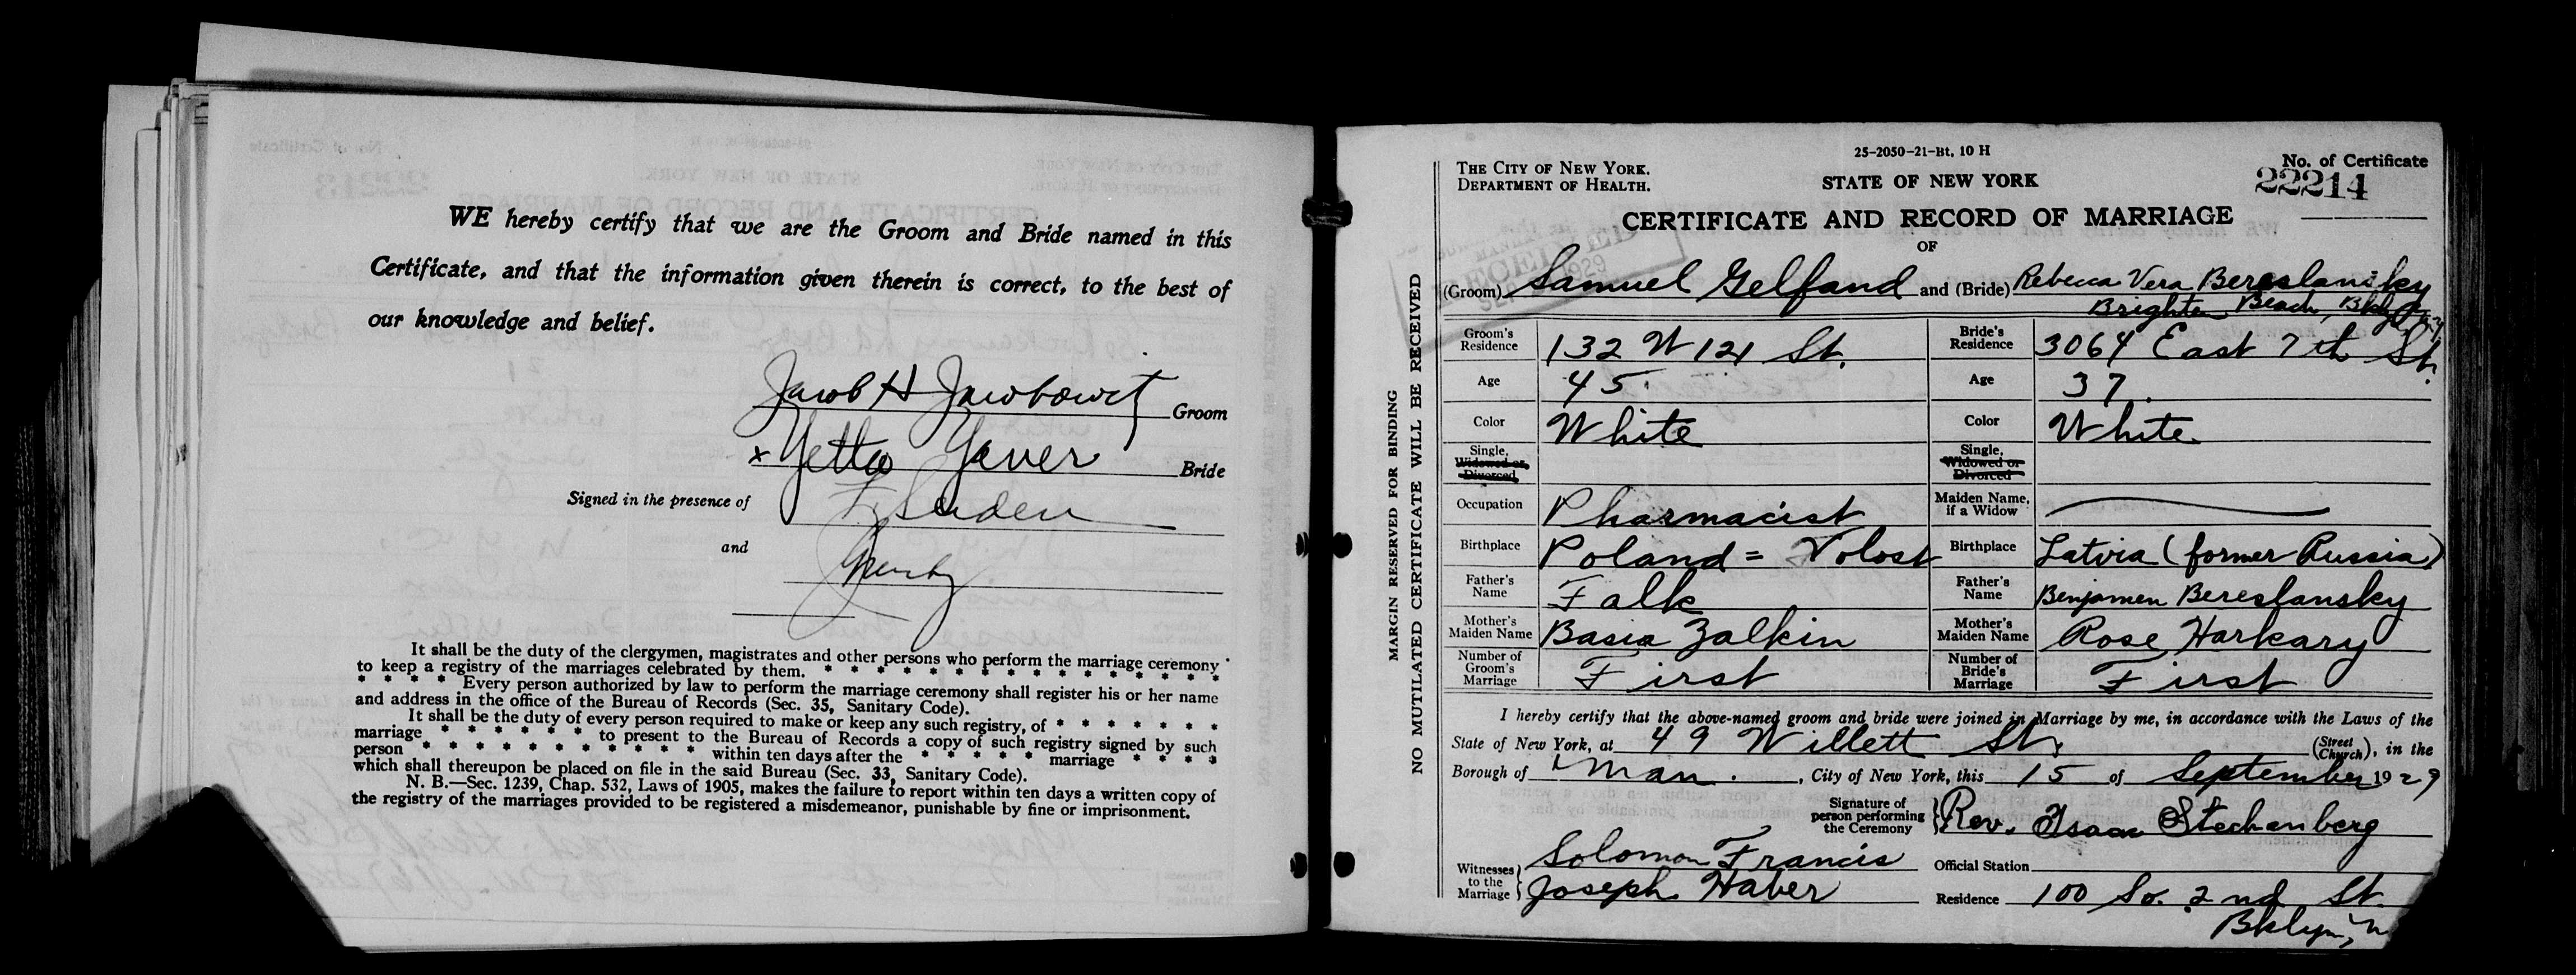 WE hereby certify that we are the Groom and Bride named in this
Certificate, and that the information given therein is correct, to the best of
our knowledge and belief.
Jacob H Jacobowitz Groom
x Yetta Yaver Bride
Signed in the presence of
and
It shall be the duty of the clergymen, magistrates and other persons who perform the marriage ceremony
to keep a registry of the marriages celebrated by them. * * * * * * * * * * * * * *
* * * * Every person authorized by law to perform the marriage ceremony shall register his or her name
and address in the office of the Bureau of Records (Sec. 35, Sanitary Code).
It shall be the duty of every person required to make or keep any such registry, of * * * * * * *
marriage * * * * * * to present to the Bureau of Records a copy of such registry signed by such
person * * * * * * * * * * * within ten days after the * * * * * marriage * * * *
which shall thereupon be placed on file in the said Bureau (Sec. 33, Sanitary Code).
N. B.—Sec. 1239, Chap. 532, Laws of 1905, makes the failure to report within ten days a written copy of
the registry of the marriages provided to be registered a misdemeanor, punishable by fine or imprisonment.
MARGIN RESERVED FOR BINDING
NO MUTILATED CERTIFICATE WILL BE RECEIVED
25-2050-21-Bt, 10 H
THE CITY OF NEW YORK.
DEPARTMENT OF HEALTH.
STATE OF NEW YORK
No. of Certificate
22214
CERTIFICATE AND RECORD OF MARRIAGE
OF
RECEIVED
1929
(Groom) Samuel Gelfand and (Bride) Rebecca Vera Bereslansky
Brighton Beach, Bklyn
Groom's Residence 132 W 121 St. Bride's Residence 3064 East 7th St.
Age 45. Age 37.
Color White Color White
Single, Widowed or Divorced Single, Widowed or Divorced
Occupation Pharmacist Maiden Name, if a Widow
Birthplace Poland = Volost Birthplace Latvia (former Russia)
Father's Name Falk Father's Name Benjamen Bereslansky
Mother's Maiden Name Basia Zalkin Mother's Maiden Name Rose Harkary
Number of Groom's Marriage First Number of Bride's Marriage First
I hereby certify that the above-named groom and bride were joined in Marriage by me, in accordance with the Laws of the
State of New York, at 49 Willett St. (Street Church), in the
Borough of Man. , City of New York, this 15 of September 1929
Signature of person performing the Ceremony Rev. Isaac Stechenberg
Witnesses to the Marriage Solomon Francis
Joseph Haber
Official Station
Residence 100 So. 2nd St.
Bklyn, N